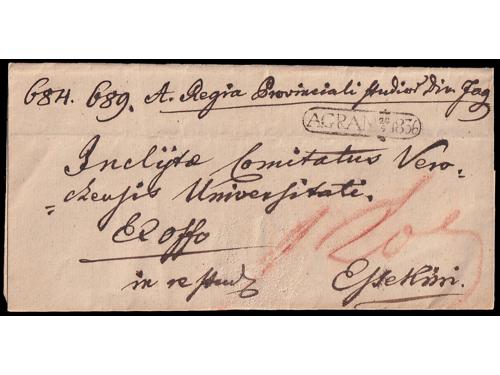 684. 689. A. Regia Provinciali Studior Div. Zag
AGRAM 24/9 1836
Inclÿtæ Comitatus Vero-
=czensis Universitati.
Ex offo
in re stud
Essekini.